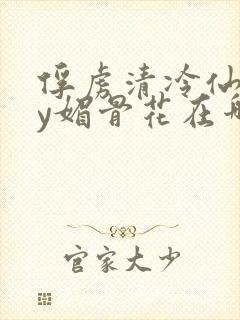 俘虏清冷仙
y媚骨花在
官家大少